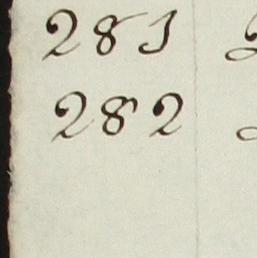 281
282